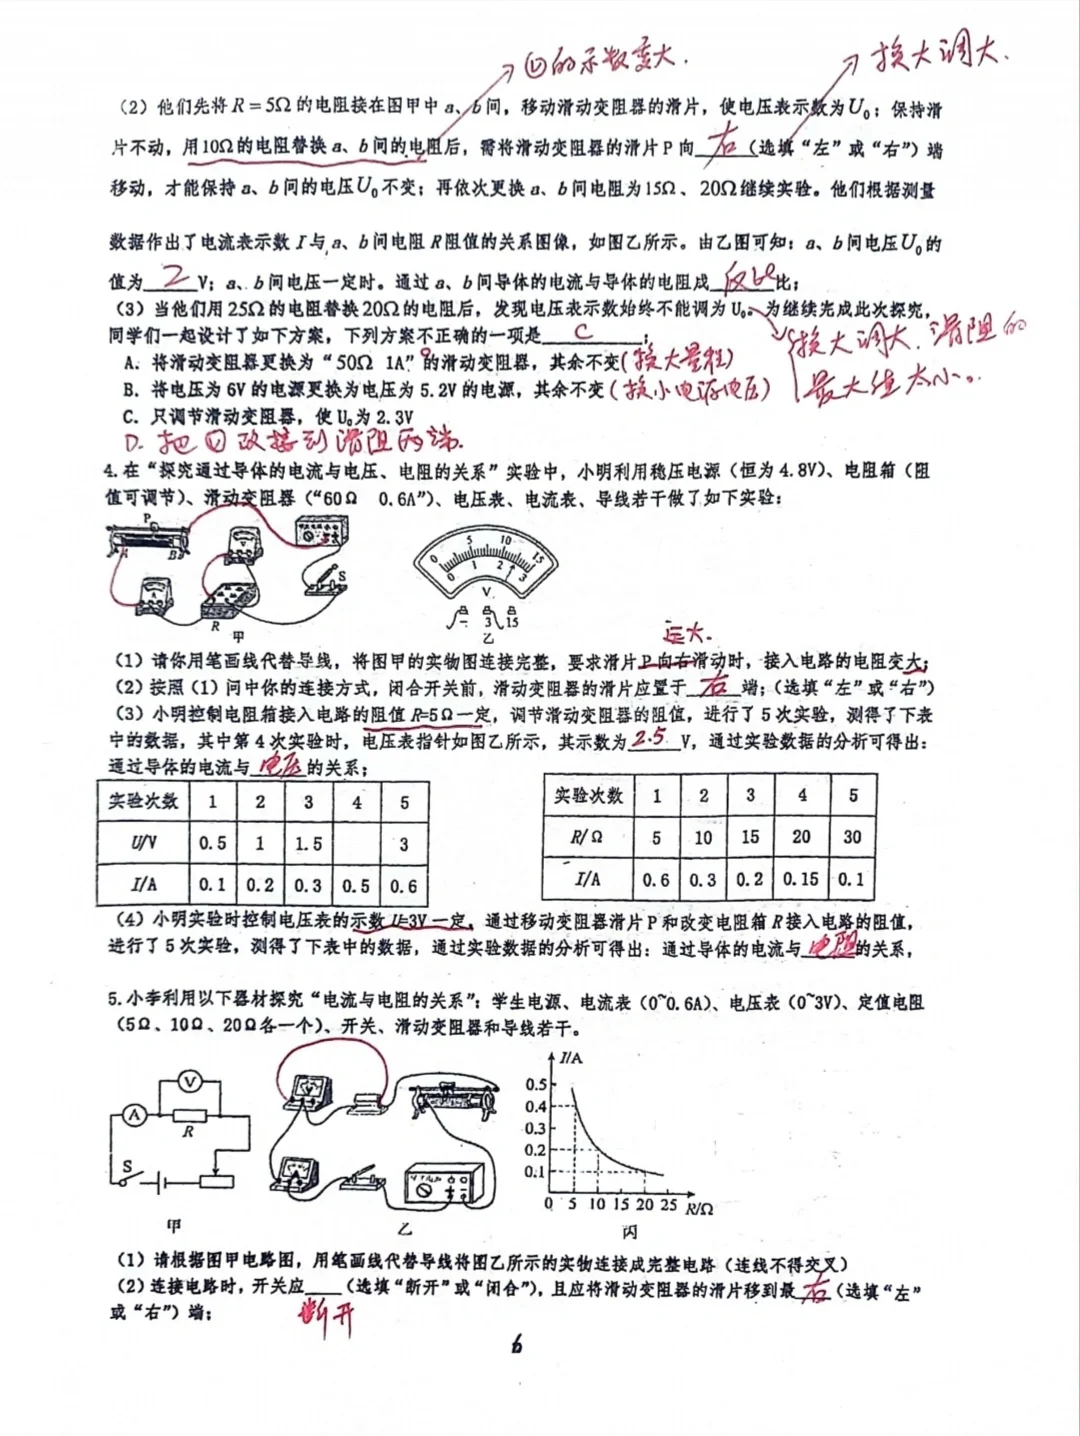 →Ⓥ的示数变大. → 换大调大.
（2）他们先将R=5Ω的电阻接在图甲中a、b间，移动滑动变阻器的滑片，使电压表示数为U₀；保持滑
片不动，用10Ω的电阻替换a、b间的电阻后，需将滑动变阻器的滑片P向 右 （选填“左”或“右”）端
移动，才能保持a、b间的电压U₀不变；再依次更换a、b间电阻为15Ω、20Ω继续实验。他们根据测量
数据作出了电流表示数I与a、b间电阻R阻值的关系图像，如图乙所示。由乙图可知：a、b间电压U₀的
值为 2 V；a、b间电压一定时。通过a、b间导体的电流与导体的电阻成 反比 比；
（3）当他们用25Ω的电阻替换20Ω的电阻后，发现电压表示数始终不能调为U₀。为继续完成此次探究，
同学们一起设计了如下方案，下列方案不正确的一项是 C ；
换大调大，滑阻的
最大值太小。
A．将滑动变阻器更换为“50Ω 1A”的滑动变阻器，其余不变（换大量程）
B．将电压为6V的电源更换为电压为5.2V的电源，其余不变（换小电源电压）
C．只调节滑动变阻器，使U₀为2.3V
D．把Ⓥ改接到滑阻两端.
4.在“探究通过导体的电流与电压、电阻的关系”实验中，小明利用稳压电源（恒为4.8V）、电阻箱（阻
值可调节）、滑动变阻器（“60Ω 0.6A”）、电压表、电流表、导线若干做了如下实验：
P A B V A R S 甲
0 5 10 15
0 1 2 3
V
- 3 15
乙
远大.
（1）请你用笔画线代替导线，将图甲的实物图连接完整，要求滑片P向右滑动时，接入电路的电阻变大；
（2）按照（1）问中你的连接方式，闭合开关前，滑动变阻器的滑片应置于 右 端；（选填“左”或“右”）
（3）小明控制电阻箱接入电路的阻值R=5Ω一定，调节滑动变阻器的阻值，进行了5次实验，测得了下表
中的数据，其中第4次实验时，电压表指针如图乙所示，其示数为 2.5 V，通过实验数据的分析可得出：
通过导体的电流与 电压 的关系；
实验次数 1 2 3 4 5
U/V 0.5 1 1.5 3
I/A 0.1 0.2 0.3 0.5 0.6
实验次数 1 2 3 4 5
R/Ω 5 10 15 20 30
I/A 0.6 0.3 0.2 0.15 0.1
（4）小明实验时控制电压表的示数U=3V一定，通过移动变阻器滑片P和改变电阻箱R接入电路的阻值，
进行了5次实验，测得了下表中的数据，通过实验数据的分析可得出：通过导体的电流与 电阻 的关系，
5.小李利用以下器材探究“电流与电阻的关系”：学生电源、电流表（0~0.6A）、电压表（0~3V）、定值电阻
（5Ω、10Ω、20Ω各一个）、开关、滑动变阻器和导线若干。
V A R S 甲
V A 乙
I/A
0.5
0.4
0.3
0.2
0.1
0 5 10 15 20 25 R/Ω
丙
（1）请根据图甲电路图，用笔画线代替导线将图乙所示的实物连接成完整电路（连线不得交叉）
（2）连接电路时，开关应____（选填“断开”或“闭合”），且应将滑动变阻器的滑片移到最 右 （选填“左”
或“右”）端；
断开
6